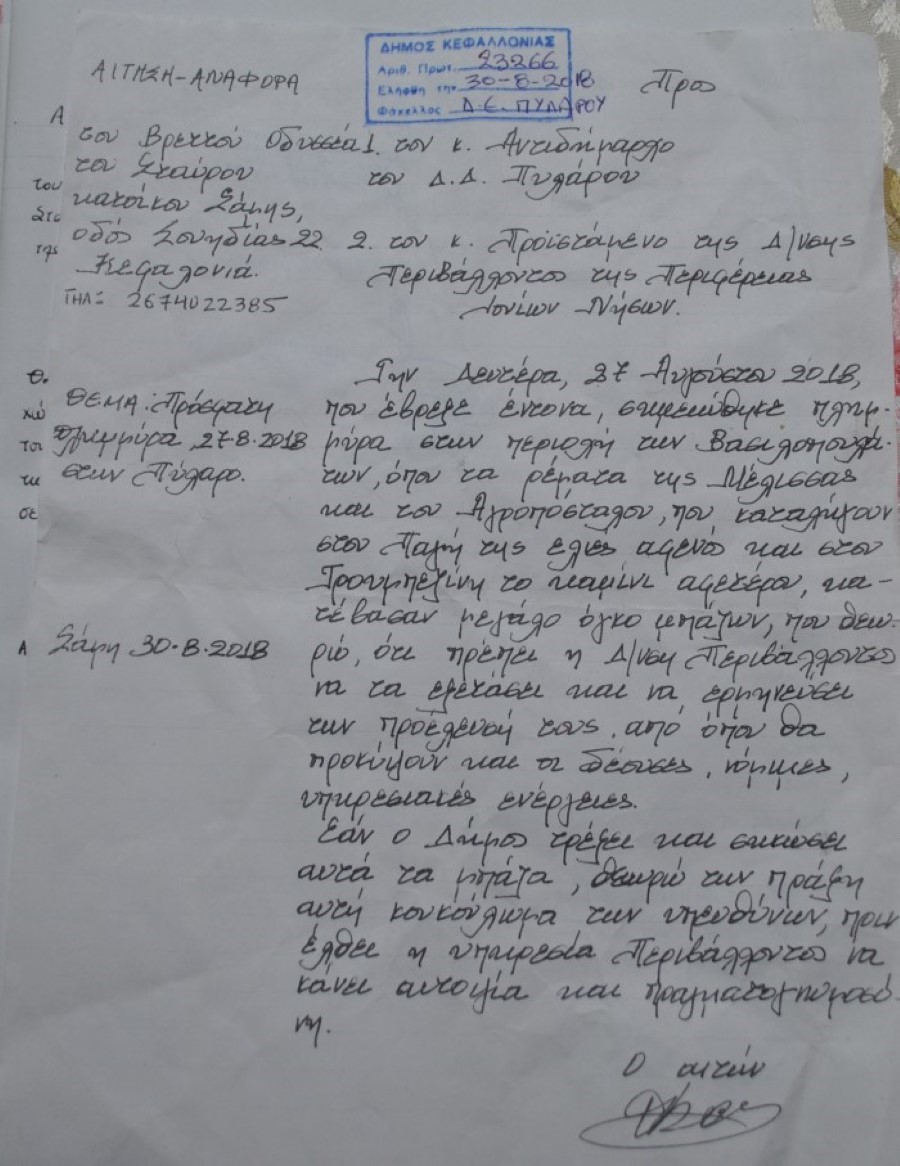 ΔΗΜΟΣ ΚΕΦΑΛΛΟΝΙΑΣ
Αριθ. Πρωτ. 23266
Ελήφθη την 30-8-2018
Φάκελλος Δ.Ε. ΠΥΛΑΡΟΥ
ΑΙΤΗΣΗ-ΑΝΑΦΟΡΑ
Προς
Α
του Βρεττού Οδυσσέα
του Σταύρου
κατοίκου Σάμης,
οδός Σουηδίας 22
Κεφαλονιά.
ΤΗΛ: 2674022385
του
Στο
της
1. τον κ. Αντιδήμαρχο
του Δ.Δ. Πυλάρου
2. τον κ. Προϊστάμενο της Δ/νσης
Περιβάλλοντος της Περιφέρειας
Ιονίων Νήσων.
Θ.
χώ
του
τω
σε
ΘΕΜΑ: Πρόσφατη
πλημμύρα, 27-8-2018
στην Πύλαρο.
Α
Σάμη 30-8-2018
Την Δευτέρα, 27 Αυγούστου 2018,
που έβρεξε έντονα, σημειώθηκε πλημ-
μύρα στην περιοχή των Βασιλοπουλά-
των, όπου τα ρέματα της Μέλισσας
και του Αγροπόσταλου, που καταλήγουν
στου Παλή της ελιές αφενός και στου
Τρουμπεζίνη το καμίνι αφετέρου, κα-
τέβασαν μεγάλο όγκο μπάζων, που θεω-
ρώ, ότι πρέπει η Δ/νση Περιβάλλοντος
να τα εξετάσει και να ερμηνεύσει
την προέλευσή τους, από όπου θα
προκύψουν και οι δέουσες, νόμιμες,
υπηρεσιακές ενέργειες.
Εάν ο Δήμος τρέξει και σηκώσει
αυτά τα μπάζα, θεωρώ την πράξη
αυτή κουκούλωμα των υπευθύνων, πριν
έλθει η υπηρεσία Περιβάλλοντος να
κάνει αυτοψία και πραγματογνωμοσύ-
νη.
Ο αιτών